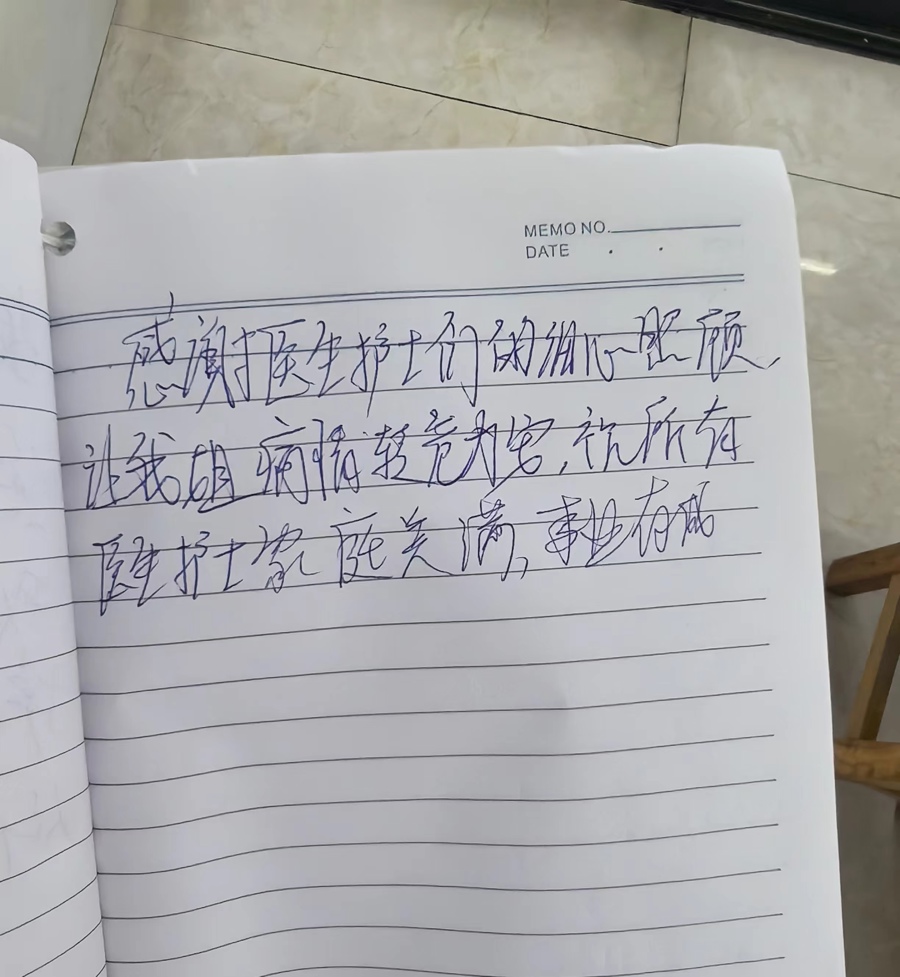 MEMO NO.
DATE . .
感謝医生护士们的细心照顾、
让我姐病情转危为安,祝所有
医生护士家庭美满,事业有成